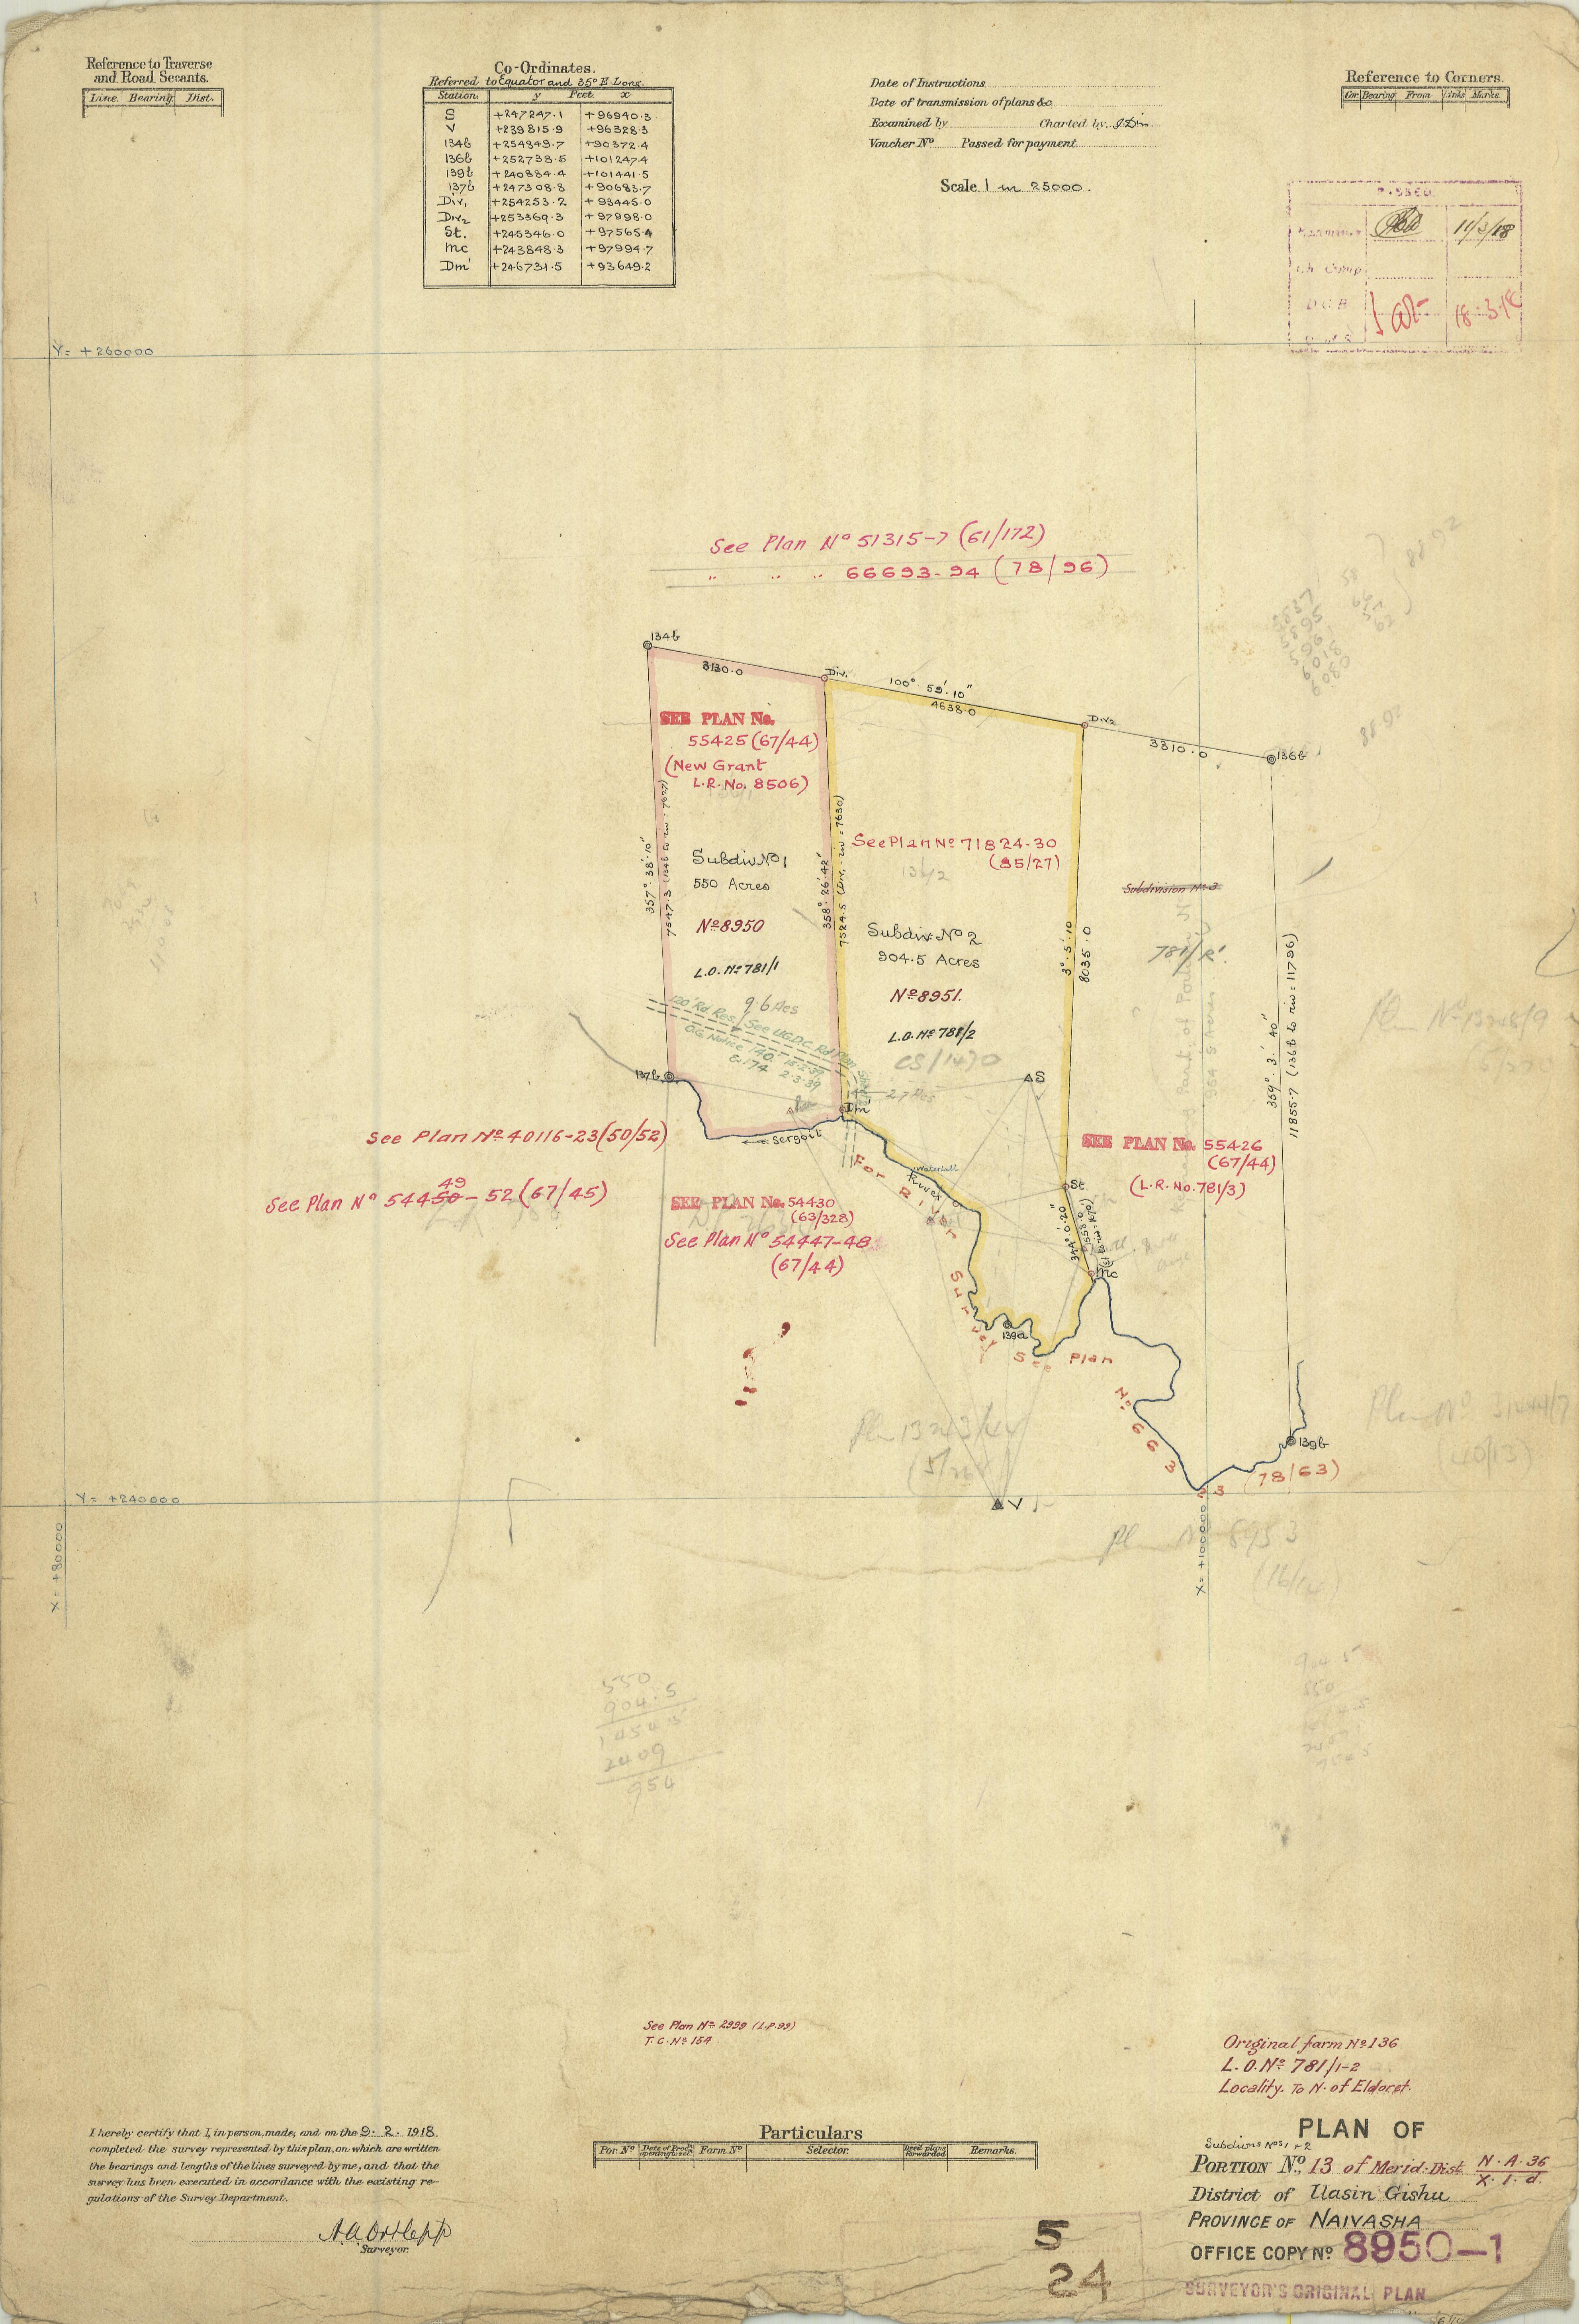 Reference to Traverse
and Road Secants.
Line. Bearing. Dist.
Co-Ordinates.
Referred to Equator and 35° E. Long.
Station. y Feet. x
S +247247.1 +96940.3
V +239815.9 +96328.3
134b +254849.7 +90372.4
136b +252738.5 +101247.4
139b +240884.4 +101441.5
137b +247308.8 +90683.7
Div1 +254253.2 +93445.0
Div2 +253369.3 +97998.0
St. +245346.0 +97565.4
mc +243848.3 +97994.7
Dm' +246731.5 +93649.2
Date of Instructions
Date of transmission of plans &c.
Examined by Charted by
Voucher No Passed for payment
Scale 1 in 25000.
Reference to Corners.
Cor Bearing From Links Marks
PASSED
11/3/18
Ch. Comp
18.3.18
Y = +260000
See Plan No 51315-7 (61/172)
" " " 66693-94 (78/96)
134b
3130.0
Div1
100°. 59'. 10"
4638.0
Div2
3810.0
136b
SEE PLAN No.
55425 (67/44)
(New Grant
L.R. No. 8506)
357°. 38'. 10"
7547.3 (134b to riv = 7627)
Subdiv. No 1
550 Acres
No 8950
L.O. No 781/1
9.6 Acs
358°. 26'. 42"
7524.5 (Div1 - riv = 7630)
See Plan No 71824-30
(85/27)
Subdiv. No 2
904.5 Acres
No 8951.
L.O. No 781/2
CS/1470
3°. 5'. 10
8035.0
Subdivision No 3
781/R'.
359°. 3'. 40"
11855.7 (136b to riv = 11796)
120' Rd. Res. See U.G.D.C. Rd Plan
O.G. Notice 140. 15.2.39
& 174 2.3.39
2.7 Acs
137b
Dm'
S
Sergoit
Waterfall
River
See Plan No 40116-23 (50/52)
See Plan No 54450 - 52 (67/45)
49
SEE PLAN No. 54430
(63/328)
See Plan No 54447-48
(67/44)
SEE PLAN No. 55426
(67/44)
(L.R. No. 781/3)
St.
344°. 0'. 20"
mc
139a
For River Survey See Plan No. 66323 (78/63)
139b
V
Y = +240000
X = +80000
X = +100000
550
904.5
1454.5
2409
954
See Plan No 2999 (L.P. 99)
T.C. No 154
Original farm No 136
L.O. No 781/1-2
Locality. To N. of Eldoret.
PLAN OF
Subdivns Nos 1 & 2
PORTION No., 13 of Merid. Dist. N.A. 36
X. 1. d.
District of Uasin Gishu
PROVINCE OF NAIVASHA
OFFICE COPY No 8950-1
SURVEYOR'S ORIGINAL PLAN
I hereby certify that I, in person, made, and on the 9. 2. 1918.
completed the survey represented by this plan, on which are written
the bearings and lengths of the lines surveyed by me, and that the
survey has been executed in accordance with the existing re-
gulations of the Survey Department.
A.A. Ortlepp
Surveyor.
Particulars
Por. No Farm No Selector. Deed plans forwarded Remarks.
5
24